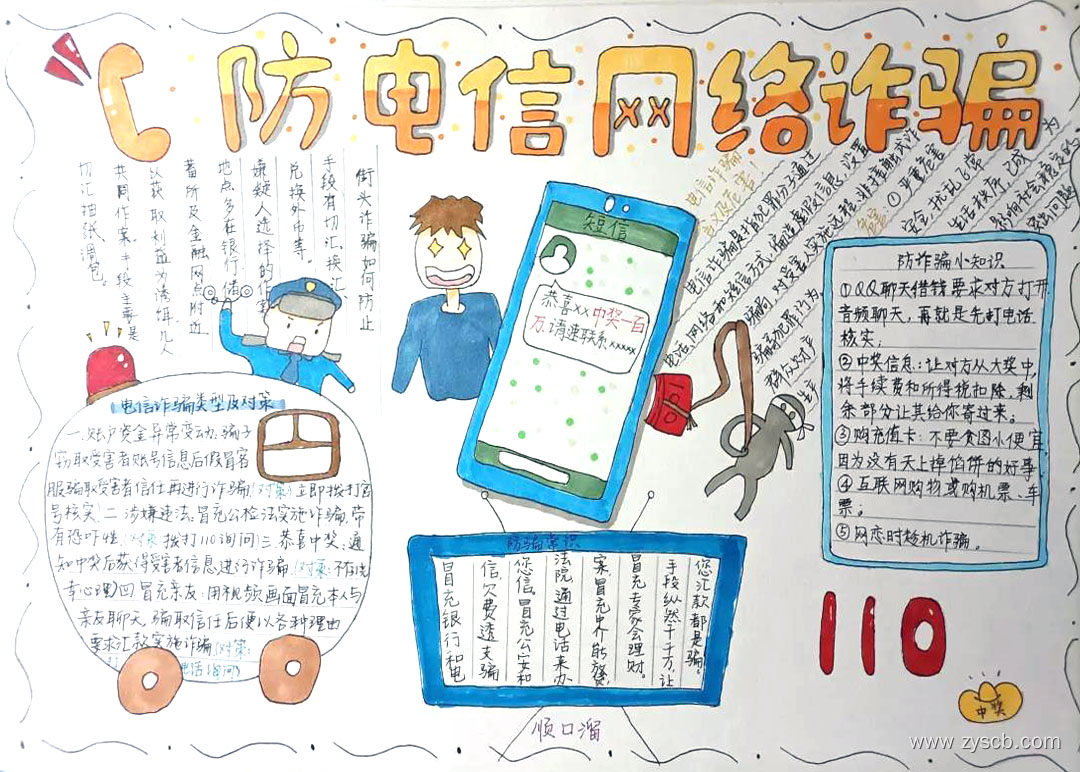 防电信网络诈骗
街头诈骗如何防止
手段有切汇、换汇、
兑换外币等。
嫌疑人选择的作案
地点多在银行、储
蓄所及金融网点附近
以获取利益为诱饵几人
共同作案。手段主要是
切汇抽纸、调包。
短信
恭喜xx中奖一百
万.请速联系xxxxx
100
电信诈骗
定义及危害!
电信诈骗是指犯罪份子通过
电话、网络和短信方式,编造虚假信息,设置
骗局,对受害人实施远程、非接触式诈
骗的犯罪行为。
危害 ①严重危害
群众财产
安全,扰乱正常
生活秩序,已成为
影响社会稳定的
突出问题
防诈骗小知识
①QQ聊天借钱要求对方打开
音频聊天,再就是先打电话
核实;
②中奖信息:让对方从大奖中,
将手续费和所得税扣除,剩
余部分让其给你寄过来。
③购充值卡:不要贪图小便宜,
因为没有天上掉馅饼的好事
④互联网购物或购机票、车
票。
⑤网恋时趁机诈骗。
电信诈骗类型及对策
一.账户资金异常变动,骗子
窃取受害者账号信息后假冒客
服骗取受害者信任再进行诈骗(对策:立即拨打官
号核实)二.涉嫌违法,冒充公检法实施诈骗,带
有恐吓性(对策:拨打110询问)三.恭喜中奖:通
知中奖后获得受害者信息进行诈骗(对策:不存侥
幸心理)四.冒充亲友:用视频画面冒充本人与
亲友聊天,骗取信任后便以各种理由
要求汇款实施诈骗(对策:
打电话询问)
防骗常识
冒充银行和电
信,欠费透支骗
您信,冒充公安和
法院,通过电话来办
案,冒充中介能发,
冒充专家会理财。
手段纵然千千万,让
您汇款都是骗。
顺口溜
110
中奖
www.zyscb.com